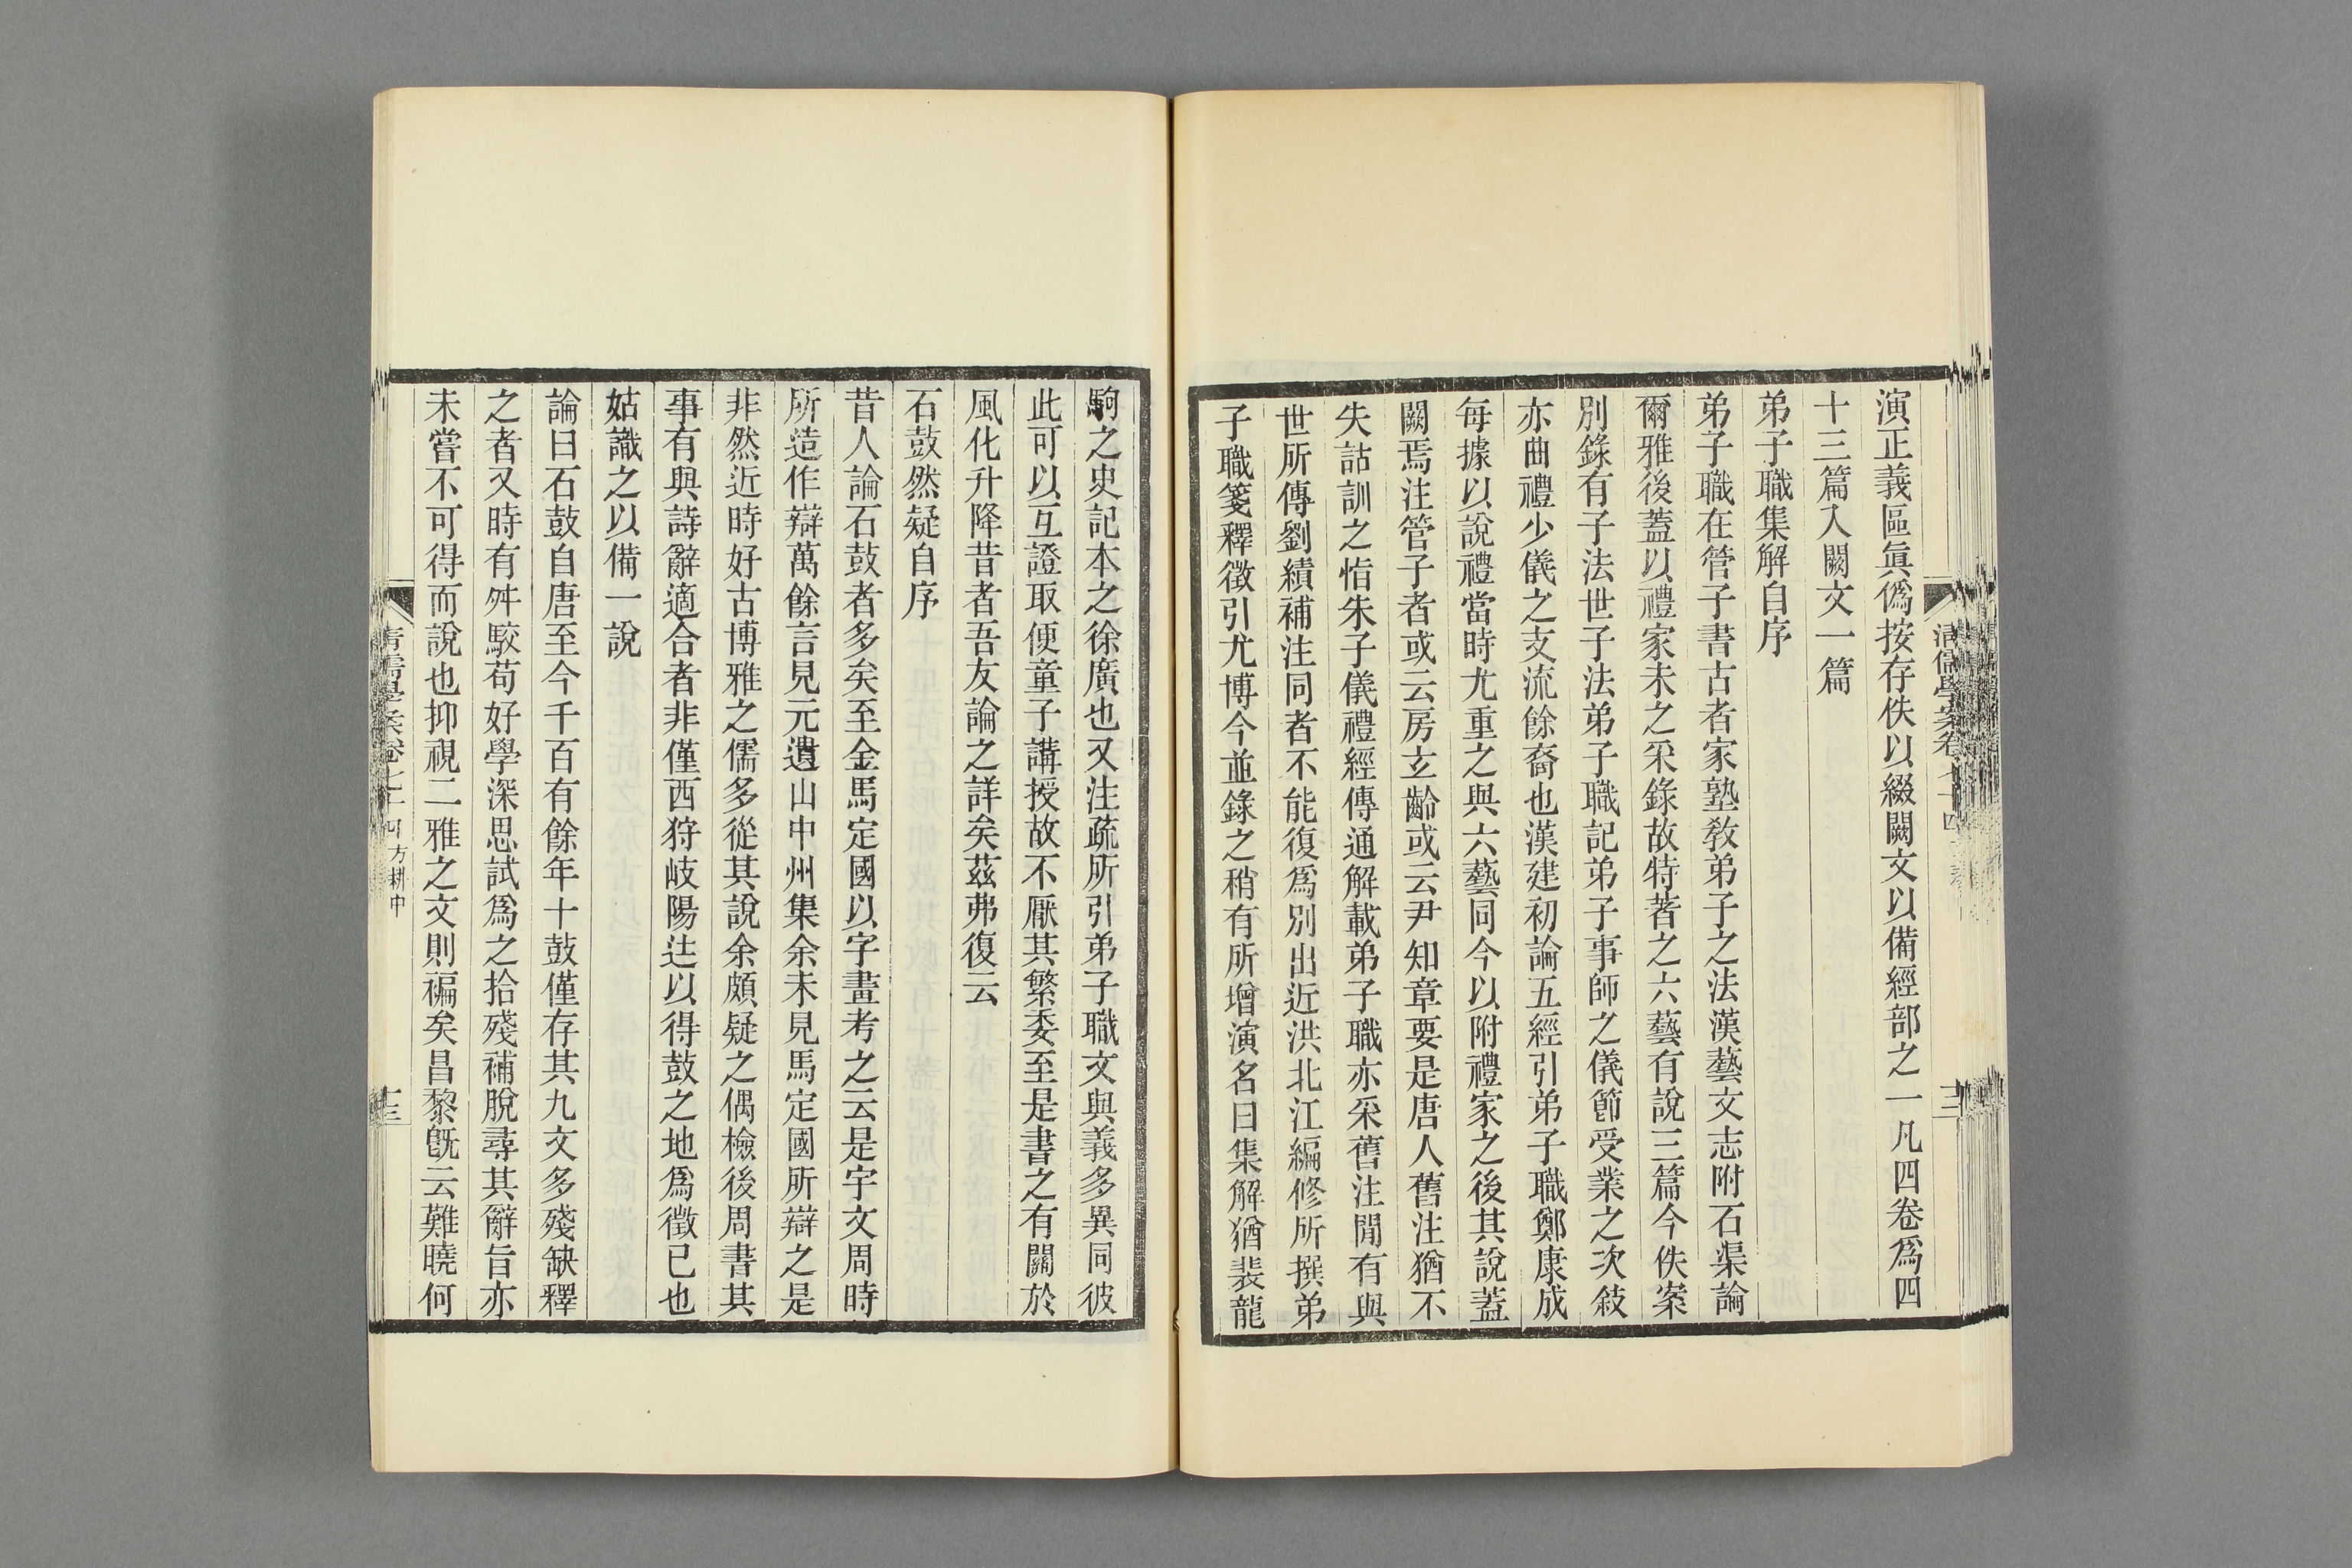 演正義區眞僞按存佚以綴闕文以備經部之一凡四卷爲四
十三篇入闕文一篇
弟子職集解自序
弟子職在管子書古者家塾敎弟子之法漢藝文志附石渠論
爾雅後蓋以禮家未之采錄故特著之六藝有說三篇今佚案
別錄有子法世子法弟子職記弟子事師之儀節受業之次敍
亦曲禮少儀之支流餘裔也漢建初論五經引弟子職鄭康成
每據以說禮當時尤重之與六藝同今以附禮家之後其說蓋
闕焉注管子者或云房玄齡或云尹知章要是唐人舊注猶不
失詁訓之恉朱子儀禮經傳通解載弟子職亦采舊注閒有與
世所傳劉績補注同者不能復爲別出近洪北江編修所撰弟
子職箋釋徵引尤博今並錄之稍有所增演名曰集解猶裴龍
駒之史記本之徐廣也又注疏所引弟子職文與義多異同彼
此可以互證取便童子講授故不厭其繁委至是書之有關於
風化升降昔者吾友論之詳矣茲弗復云
石鼓然疑自序
昔人論石鼓者多矣至金馬定國以字畫考之云是宇文周時
所造作辯萬餘言見元遺山中州集余未見馬定國所辯之是
非然近時好古博雅之儒多從其說余頗疑之偶檢後周書其
事有與詩辭適合者非僅西狩岐陽迬以得鼓之地爲徵已也
姑識之以備一說
論曰石鼓自唐至今千百有餘年十鼓僅存其九文多殘缺釋
之者又時有舛駮苟好學深思試爲之拾殘補脫尋其辭旨亦
未嘗不可得而說也抑視二雅之文則褊矣昌黎旣云難曉何
清儒學案卷七十四 方耕中
十三